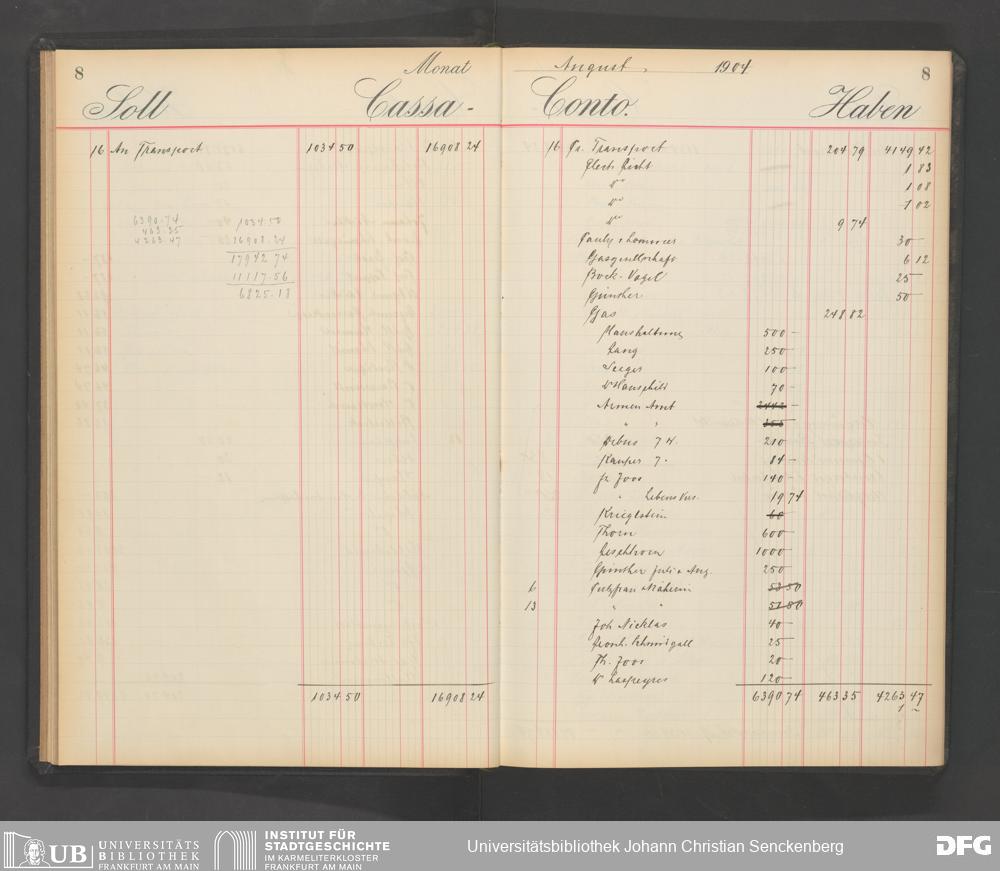 8
Monat
Soll Cassa-
16 An Transport 1034 50 16908 24
6390.74
463.35 1034.50
4263.47 16908.24
17942 74
11117.56
6825.18
1034 50 16908 24
August 1904
8
Conto. Haben
16 Pr. Transport 204 79 4149 42
Electr. Licht 1 83
do 1 08
do 1 02
do 9 74
30 -
Gasgesellschaft 6 12
Bock-Vogel 25 -
Günther 50 -
Gas 248 82
Haushaltung 500 -
Lang 250 -
Seeger 100 -
Dr Hauschild 70 -
Armen Amt 2442 -
" " 355
Debus 7 H. 210
Kauper 7. 84 -
Fr. Joos 140 -
" Lebens Vers. 19 74
Krieglstein 60
Thorn 600 -
Peschhorn 1000 -
Günther Juli & Aug. 250 -
6 Putzfrau & Näherin 53 50
13 " " 51 80
Joh Nicklas 40 -
Leonh. Schmidgall 25 -
Th. Joos 20 -
Dr Laspeyres 120 -
6390 74 463 35 4263 47
1 ~
UB UNIVERSITÄTS
BIBLIOTHEK
FRANKFURT AM MAIN
INSTITUT FÜR
STADTGESCHICHTE
IM KARMELITERKLOSTER
FRANKFURT AM MAIN
Universitätsbibliothek Johann Christian Senckenberg
DFG